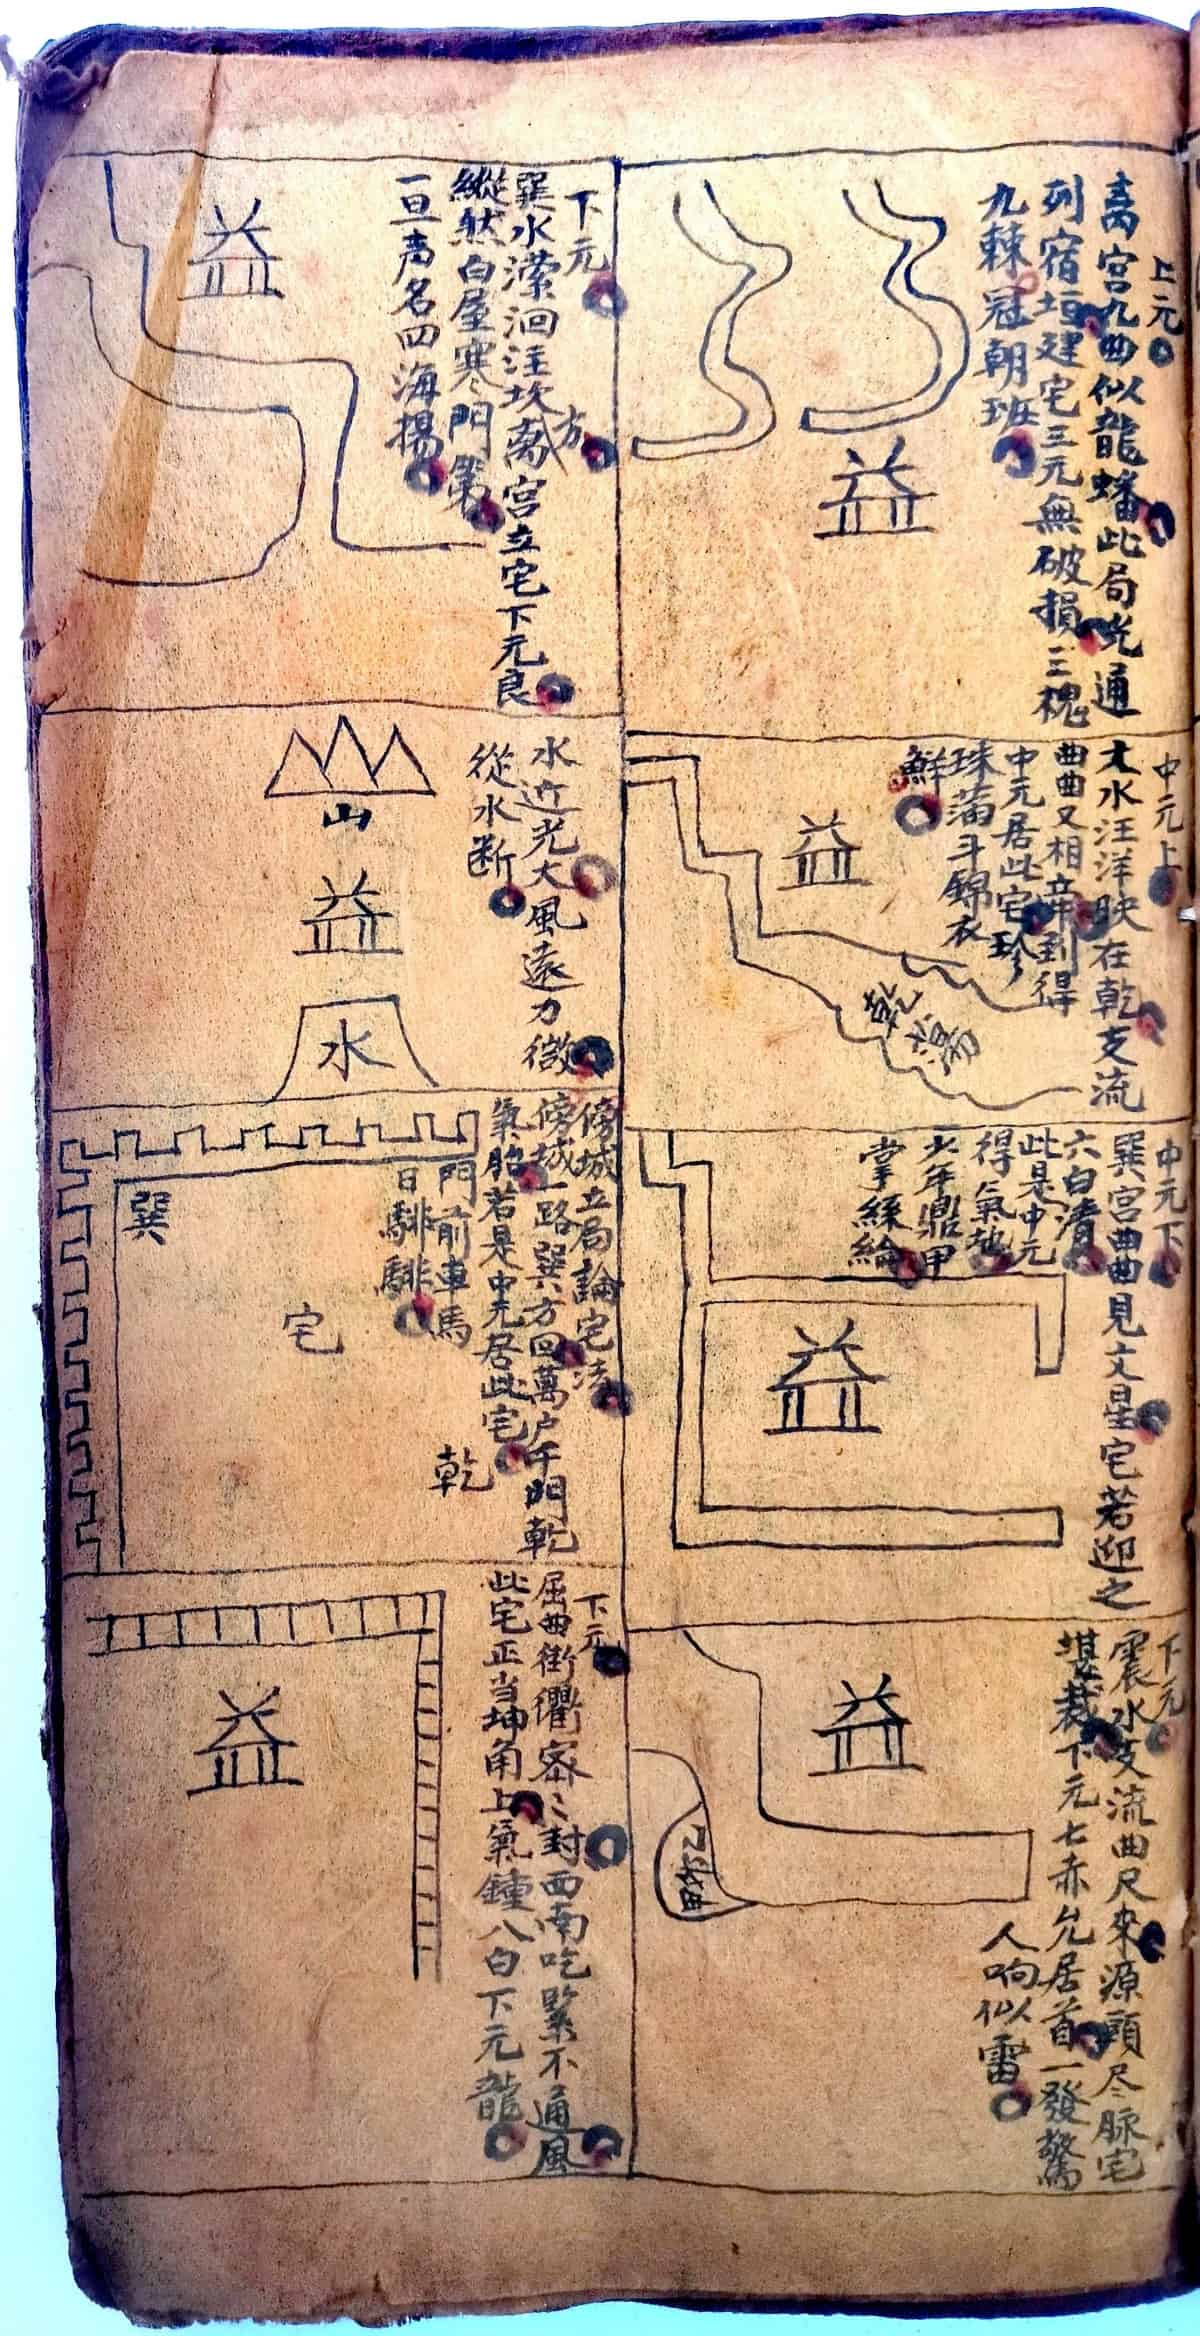 上元
离宫九曲似龍蟠此局光通
列宿垣建宅三元無破損三槐
九棘冠朝班
益
中元上
大水汪洋映在乾支流
曲曲又相牽到得
中元居此宅珍
珠蒲斗錦衣
鮮
益
乾
中元下
巽宫曲曲見文星宅若迎之
六白清
此是中元
得氣地
少年鼎甲
掌絲綸
益
下元
震水支流曲尺來源頭尽脉宅
堪裁下元七赤允居首一發驚
人响似雷
益
下元
巽水濚洄注坎方
离宫立宅下元良
縱然白屋寒門第
一旦声名四海揚
益
水近光大風遠力微
從水断
山
益
水
傍城立局論宅法
傍城一路巽方回萬户千門乾
氣胎若是中元居此宅
門前車馬
日騑騑
巽
宅
乾
下元
屈曲街衢密〻封西南吃緊不通風
此宅正当坤角上氣鍾八白下元龍
益